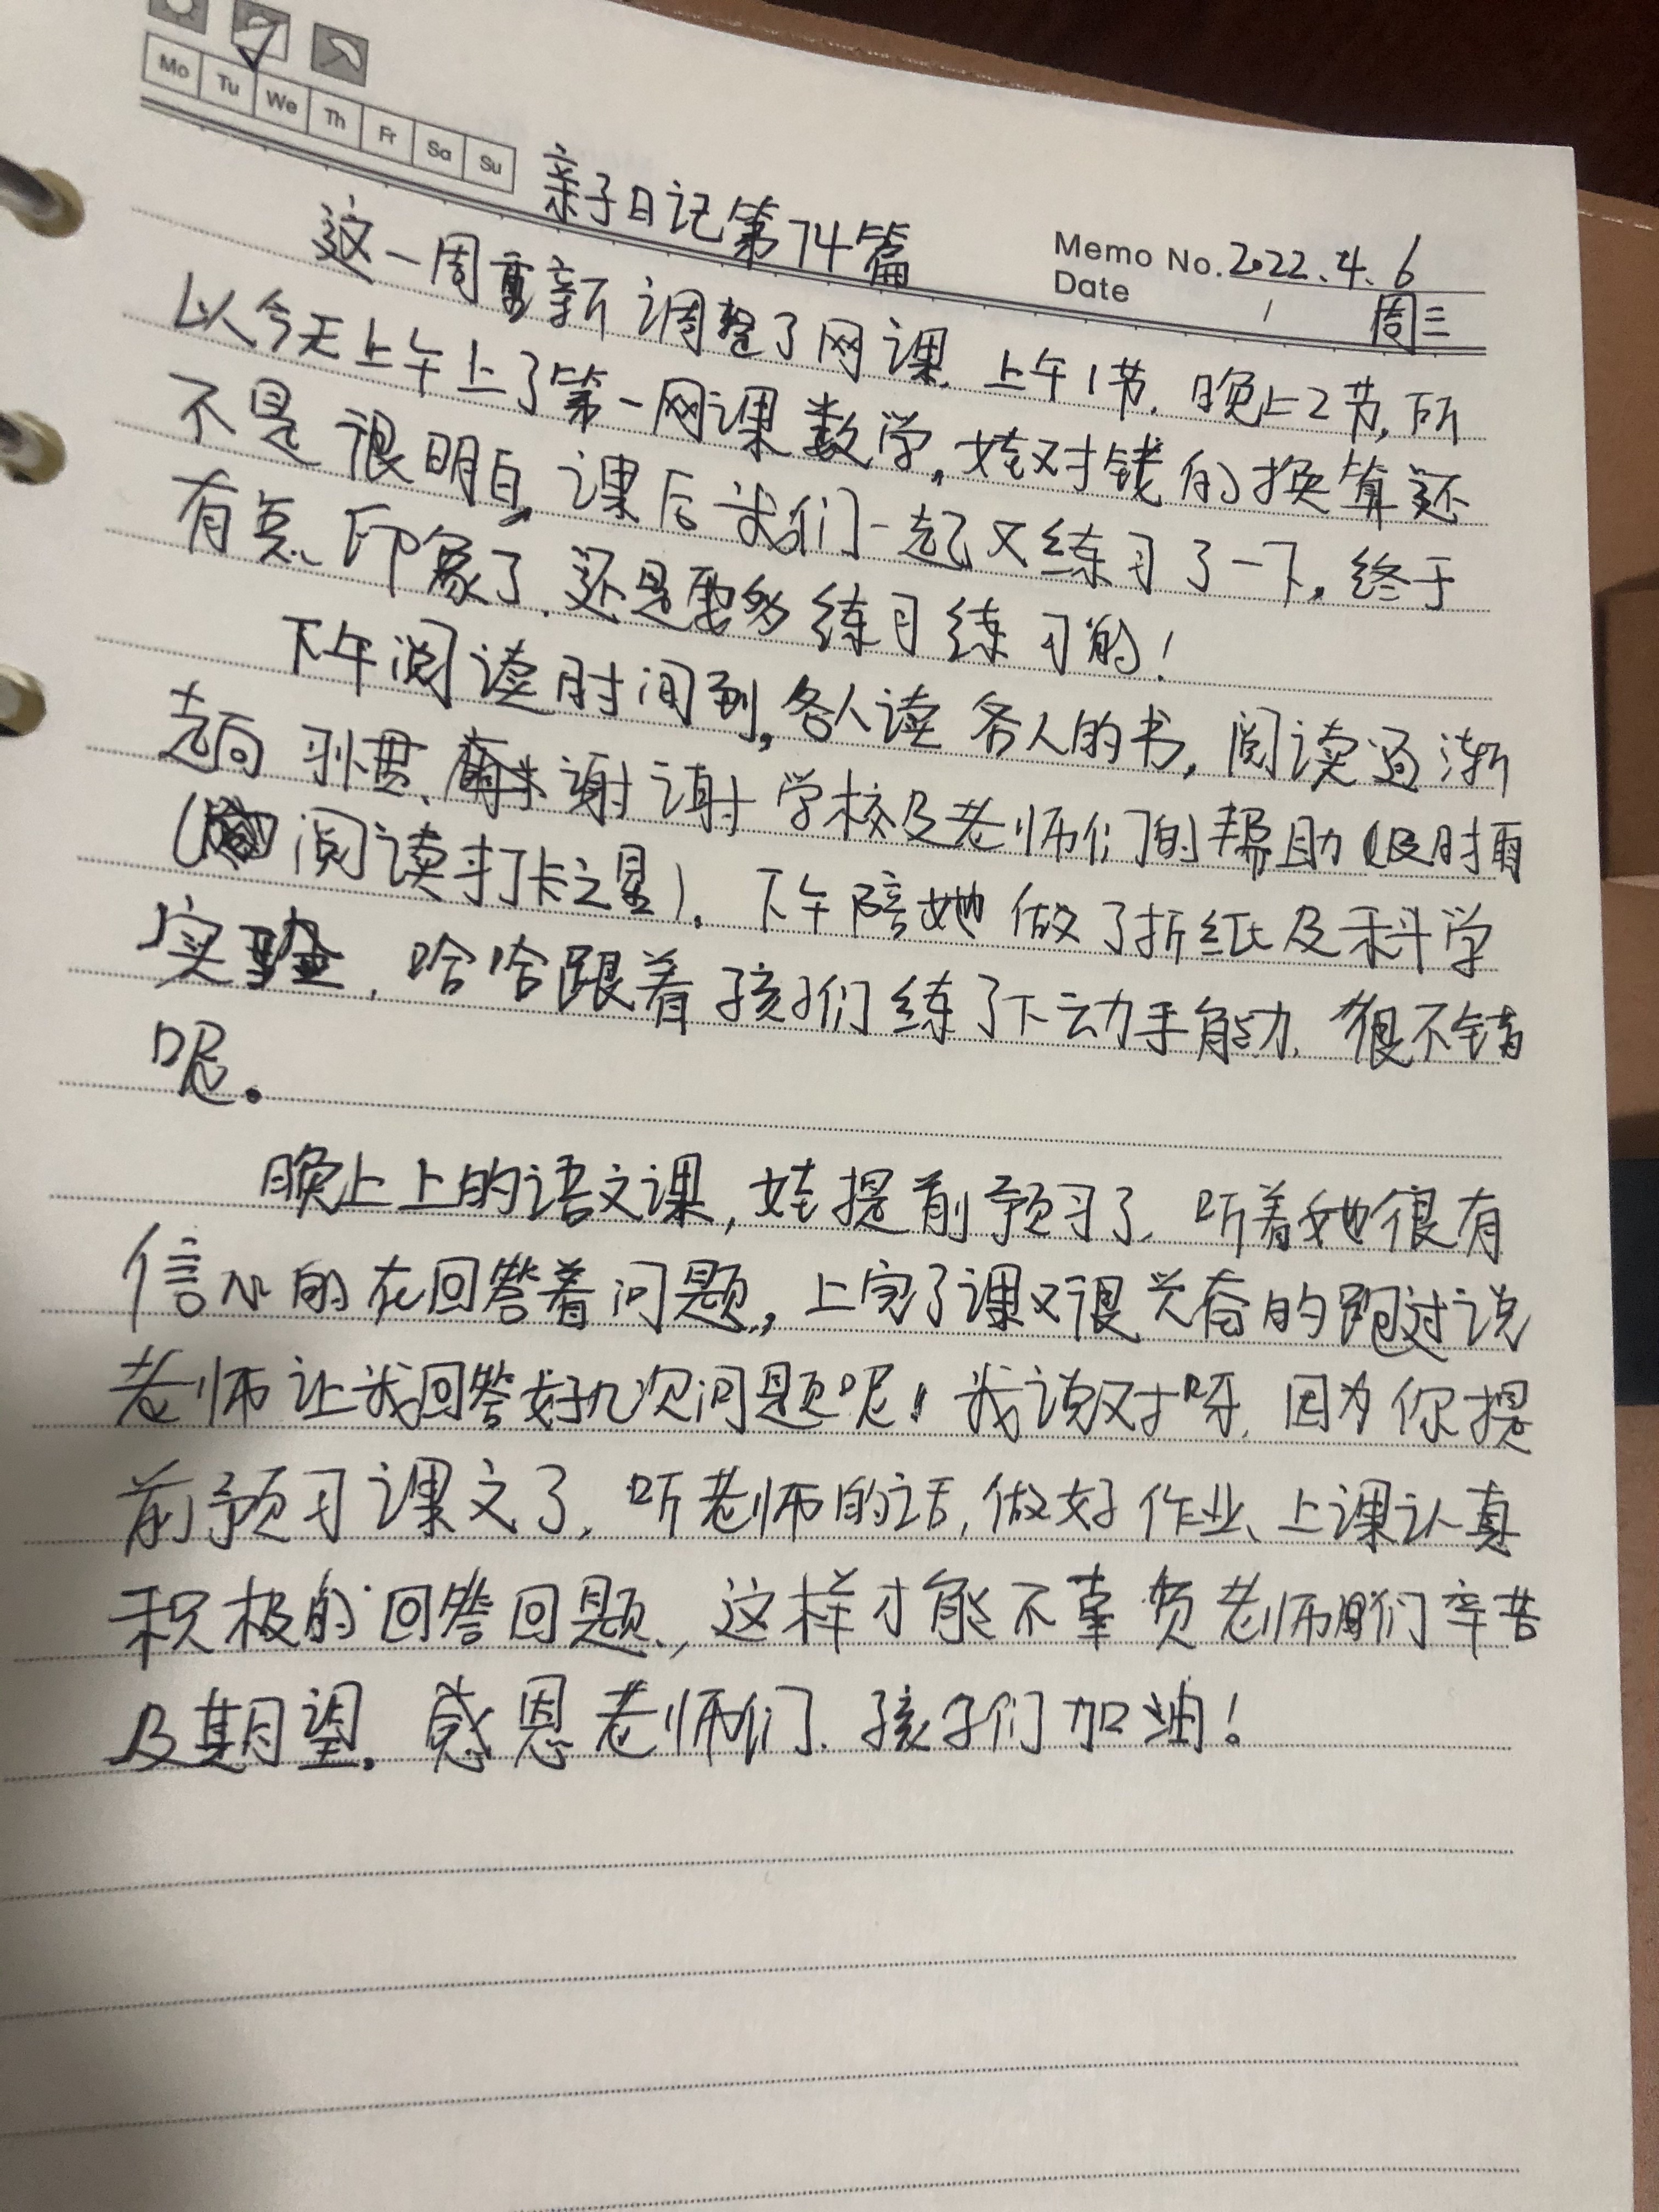 Mo Tu We Th Fr Sa Su
亲子日记第74篇
Memo No. 2022.4.6
Date 周三
这一周重新调整了网课.上午1节.晚上2节,所
以今天上午上了第一网课数学,娃对钱的换算还
不是很明白,课后我们一起又练习了一下,终于
有点印象了.还是要多练习练习的!
下午阅读时间到,各人读各人的书,阅读逐渐
走向习惯、谢谢学校及老师们的帮助(及时雨
(阅读打卡之星).下午陪她做了折纸及科学
实验,哈哈跟着孩子们练了下动手能力.很不错
呢。
晚上上的语文课,娃提前预习了.听着她很有
信心的在回答着问题,上完了课又很兴奋的跑过说
老师让我回答好几次问题呢!我说对呀.因为你提
前预习课文了.听老师的话,做好作业、上课认真
积极的回答回题,这样才能不辜负老师们辛苦
及期望.感恩老师们.孩子们加油!